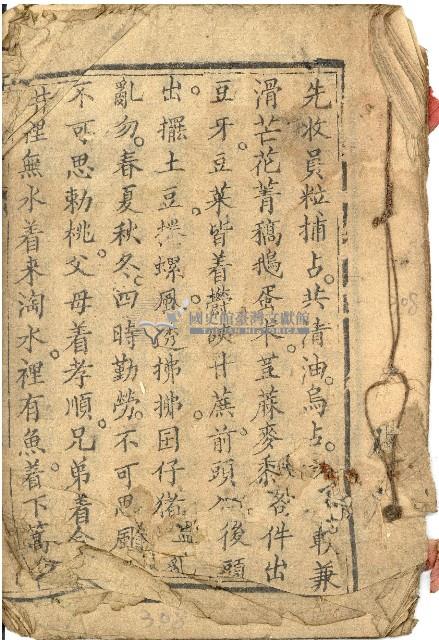 先收員粒捕占。共清油烏占。軟兼
滑芒花菁藁鵝蛋芋荳蔴麥黍各件出
豆牙。豆菜皆着鬱甘蔗前頭後頭
出擺土豆螺風拂拂囝仔猪
亂勿。春夏秋冬。四時勤勞。不可思風
不可思勅桃。父母着孝順。兄弟着
井裡無水着來淘。水裡有魚着下
國史館臺灣文獻館
TAIWAN HISTORICA
308